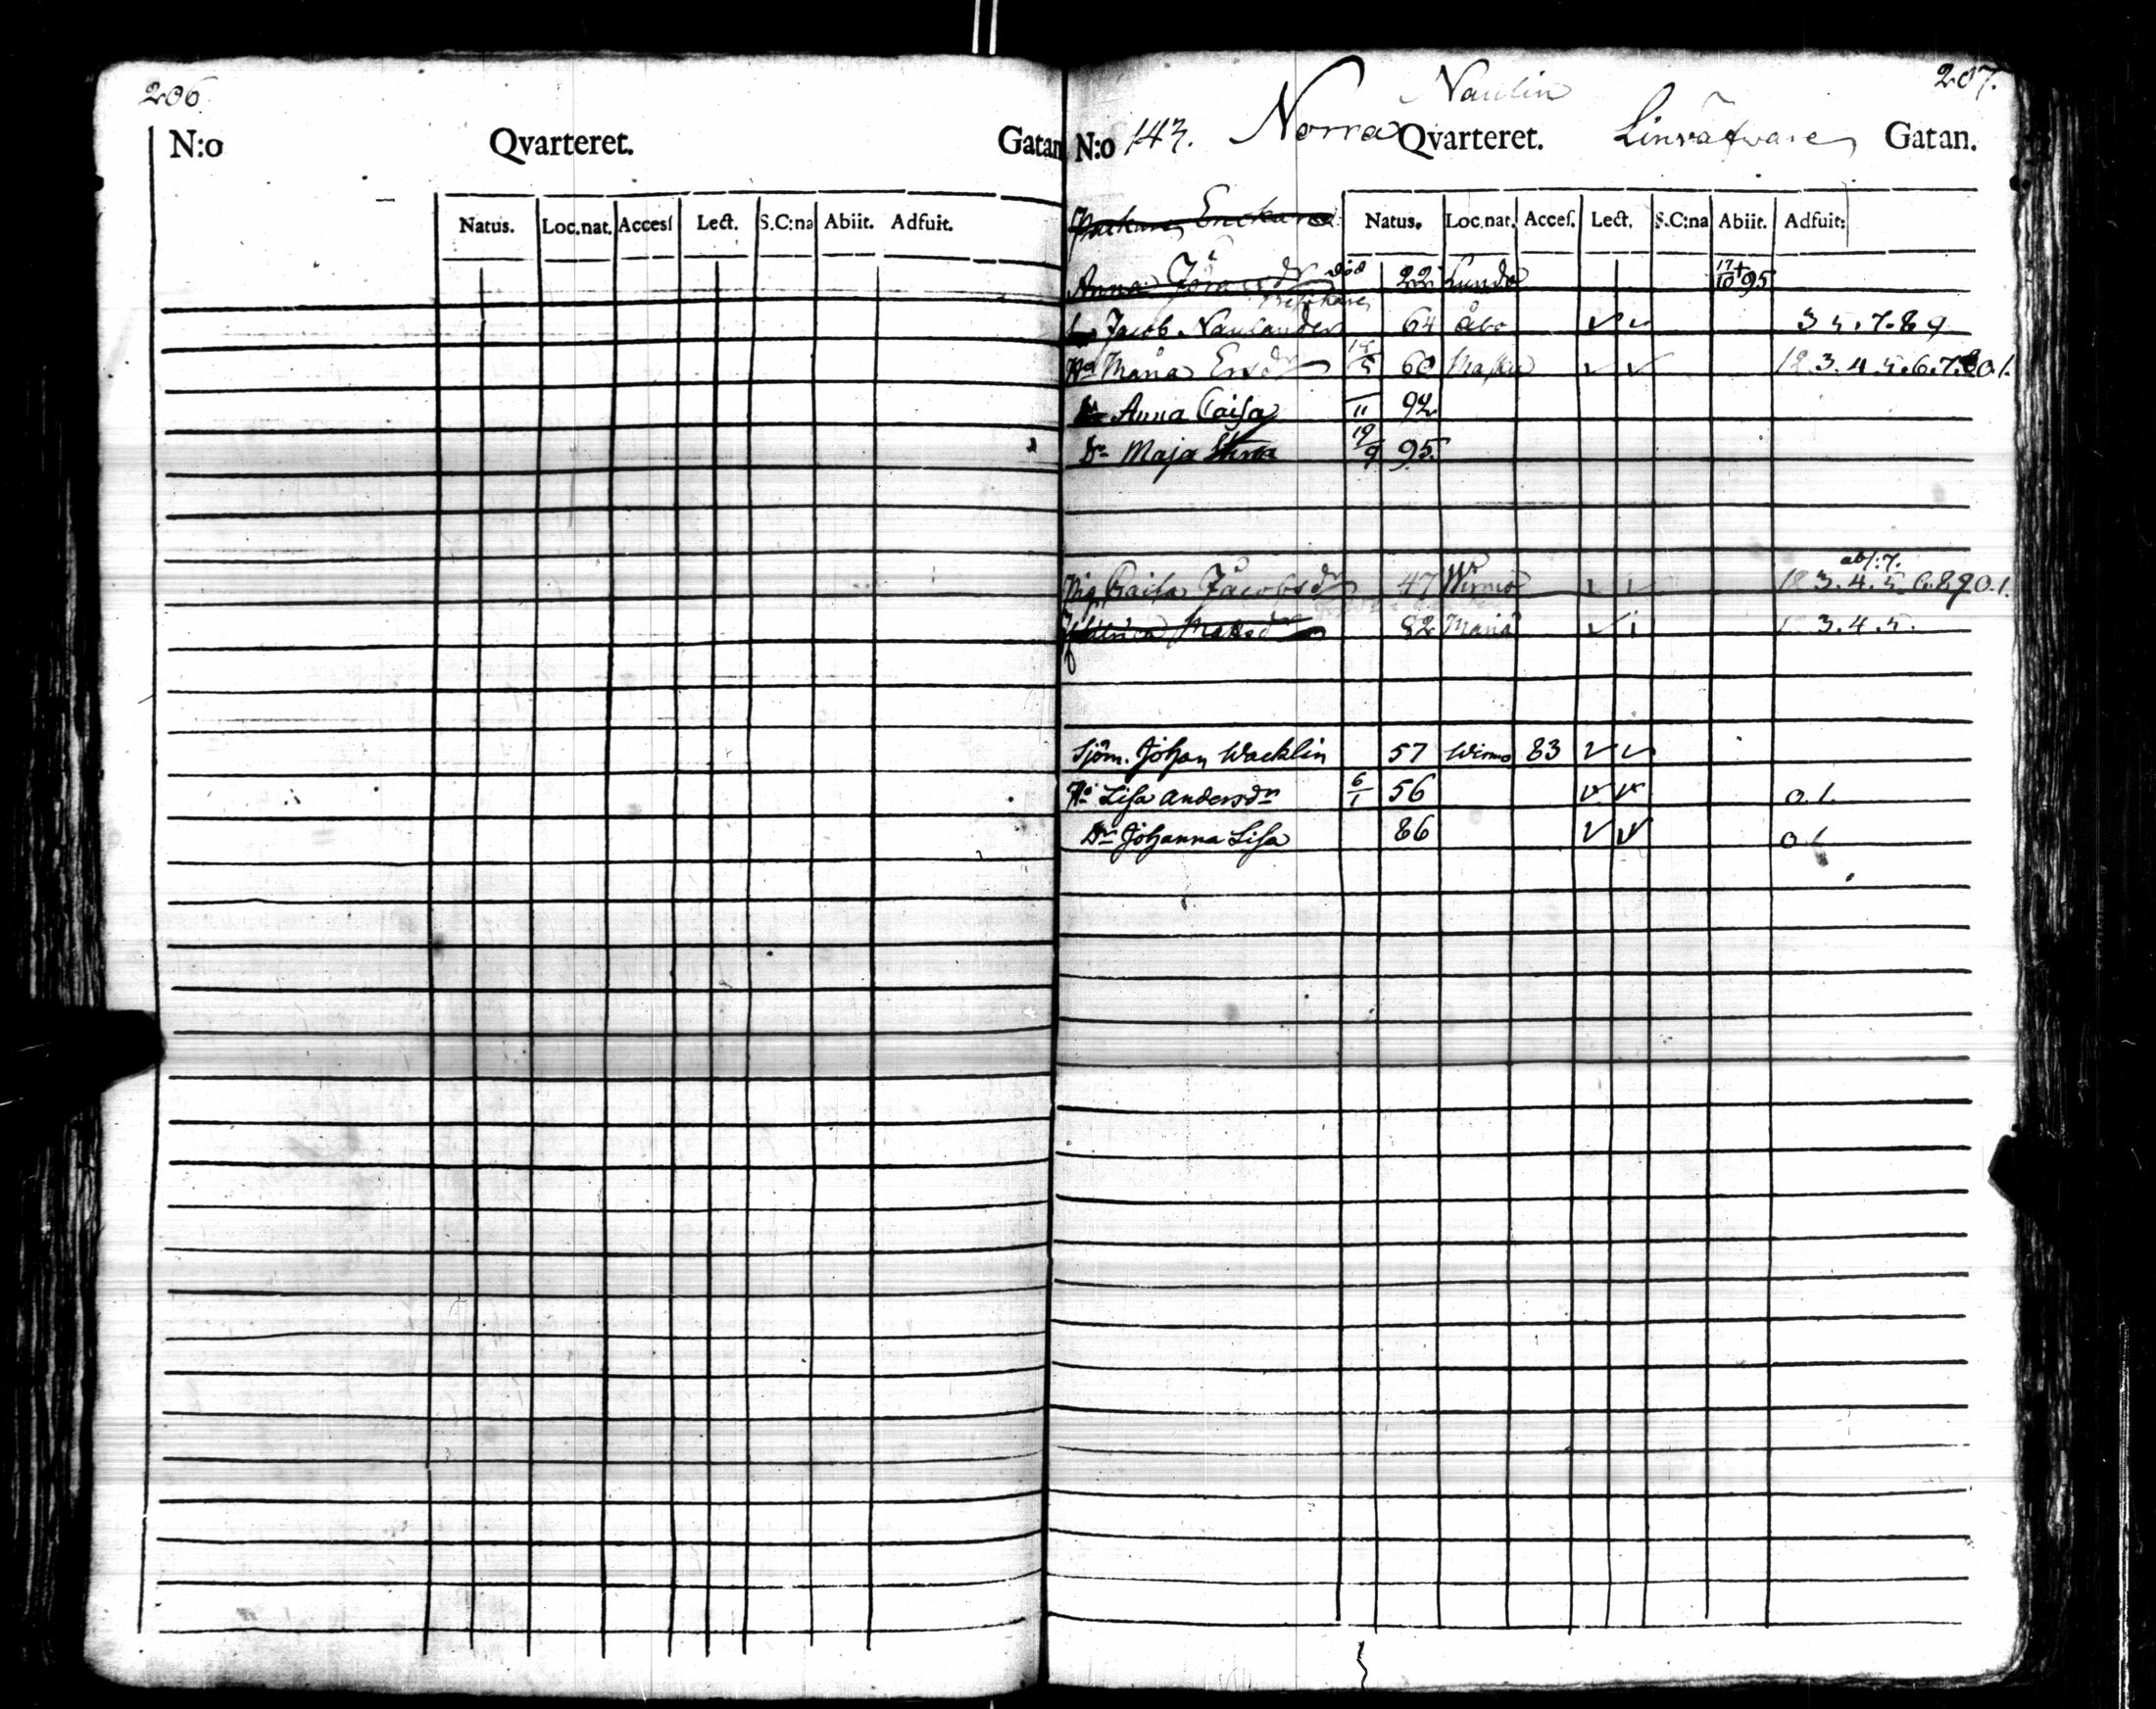 206.
N:o Qvarteret. Gatan
Natus. Loc.nat. Accesſ Lect. S.C:na Abiit. Adfuit.
207.
Naulin
N:o 143. Norra Qvarteret. Gatan.
Enckan
Natus. Loc.nat. Acceſ. Lect. S.C:na Abiit. Adfuit:
Anna Jöransdr död 22 Lundo 17/10 + 95
Jacob Naulander 64 Åbo 3 5. 7. 8 9
Maria Ersdr 60 Masku 12. 3. 4. 5. 6. 7. 8 0. 1.
Anna Caisa 11 92
Dr Maja Stina 19/9 95.
abs: 7.
Pig. Caisa Jacobsdr 47 Wirmo 12 3. 4. 5. 6. 8 9 0. 1.
Matsdr 82 Maria 3. 4. 5.
Sjöm. Johan Wacklin 57 Wirmo 83
Lisa Andersdr 6/1 56 0. 1.
Dr Johanna Lisa 86 0 1